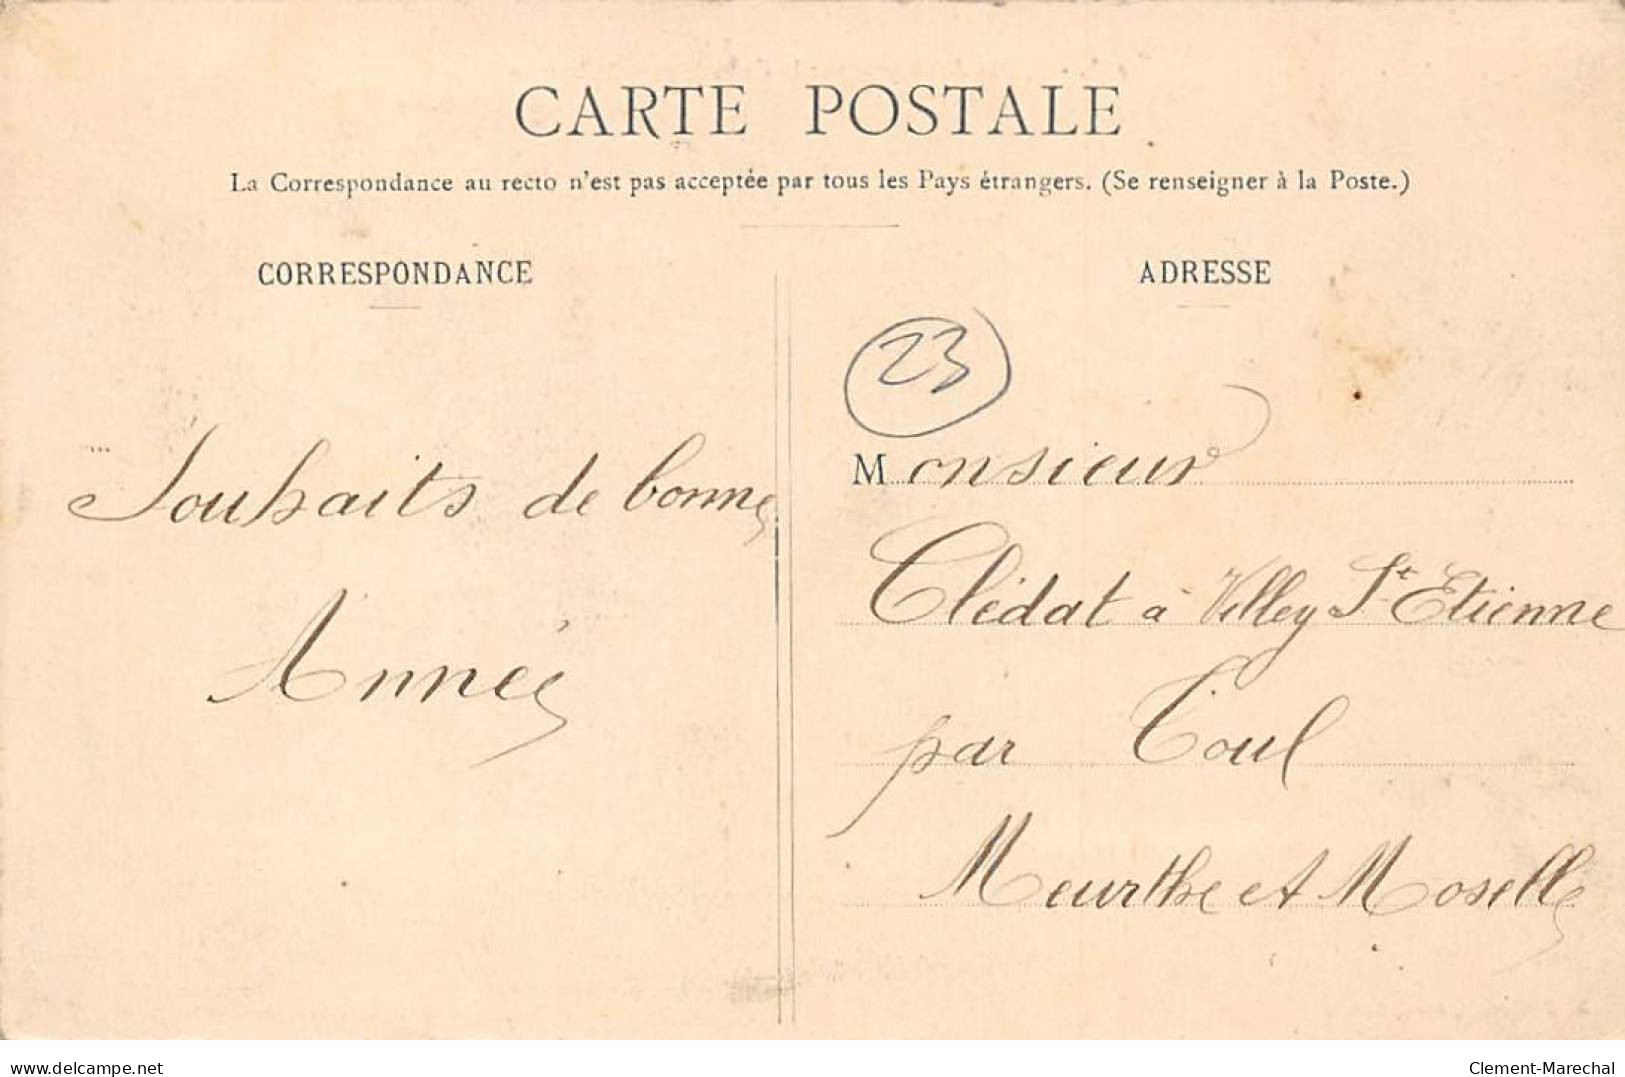 CARTE POSTALE
La Correspondance au recto n'est pas acceptée par tous les Pays étrangers. (Se renseigner à la Poste.)
CORRESPONDANCE
Souhaits de bonne
Année
ADRESSE
23
Monsieur
Clédat à Villey St Etienne
par Toul
Meurthe et Moselle
www.delcampe.net
Clement-Marechal